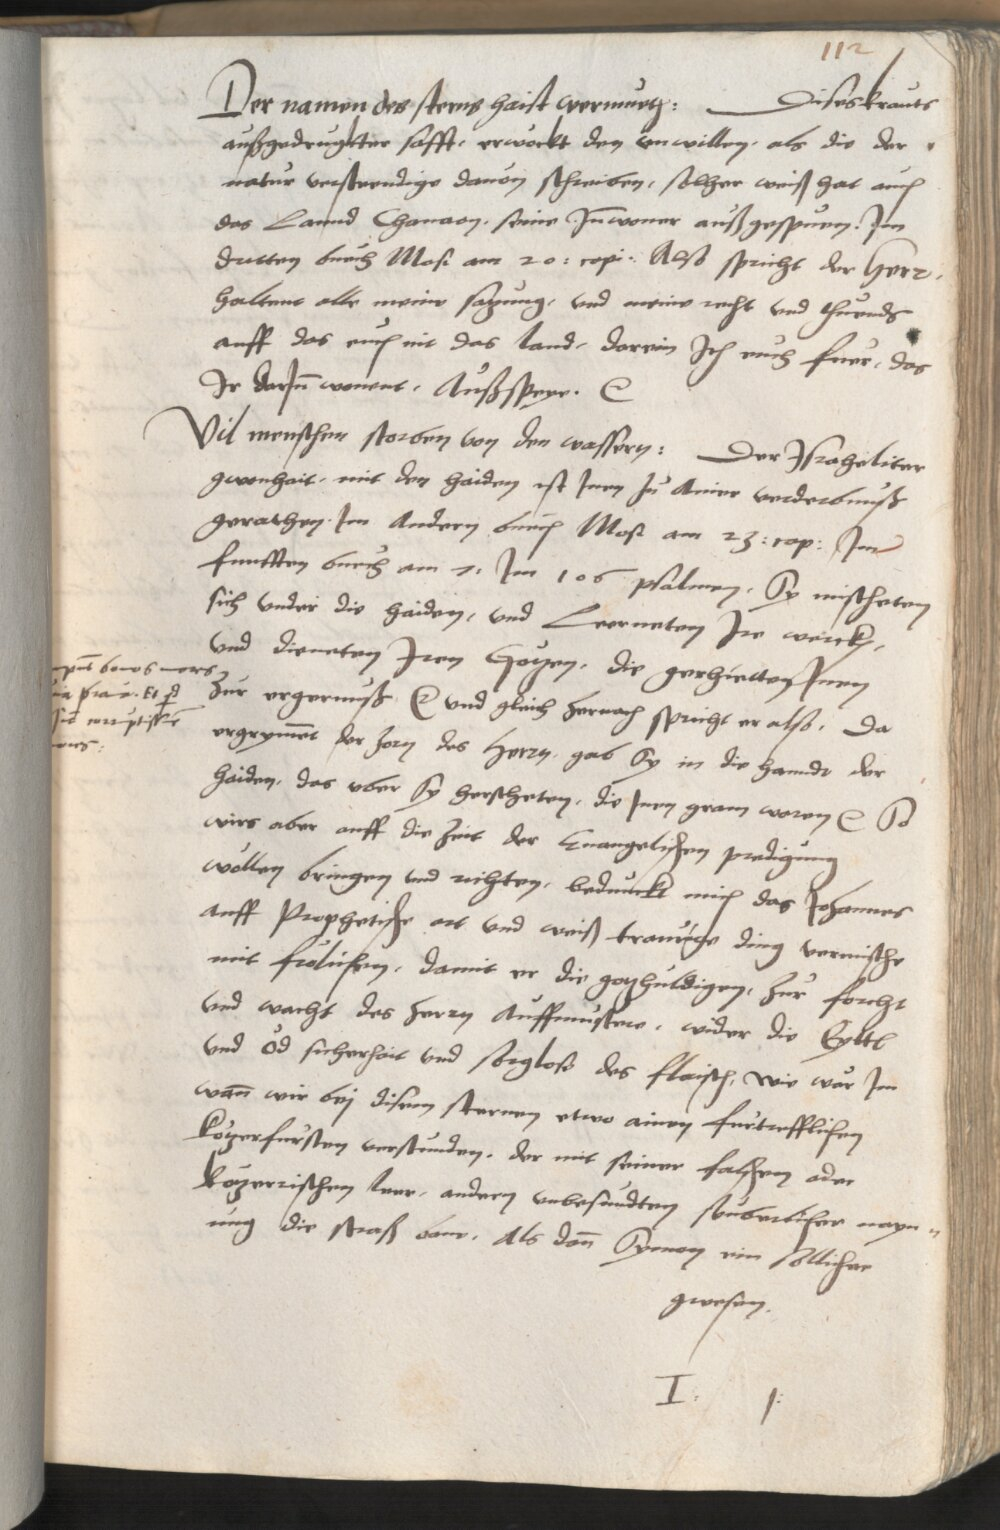 112
Der namen des sterns haist wermuetz: Dises krauts
außgedrugkter safft, erweckt den vnwillen, als die der
natur verstendige dauon schreiben, solher weiß hat auch
das Lannd Chanaan, seine Inwoner außgespuen. Im
dritten buech Mosi am 20: capi: Also spricht der Herr,
haltent alle meine satzung, vnd meine recht vnd thuends
auff das euch nit das land, darein Ich euch fuer, das
Ir darInn wonent, Außspeye. &
Vil menschen storben von den wassern: Der Israheliter
gwonhait, mit den haiden ist Inen zu Ainer verderbnuß
gerathen. Im Andern buech Mosi am 23: cap: Im
funfften buech am 7: Im 106 psalmen, Sy mischeten
sich vnder die haiden, vnd Lerneten Ire werck,
vnd dieneten Iren Götzen, die gerhietten Inen
zur ergernuß & vnd gleich hernach spricht er also. Da
ergrymmet der zorn des Herrn, gab Sy in die hanndt der
haiden, das vber Sy herscheten, die Inen gram waren & So
wirs aber auff die zeit der Euangelischen predigung
wöllen bringen vnd richten, bedunckt mich das Johannes
auff Prophetische art vnd weiß traurige ding vermische
mit frölichen, damit er die gotzhuldigen, zur forcht
vnd wacht des herrn Auffmustere, wider die Eytle
vnd öd sicherhait vnd sorgloß des flaisch, wie war Im
wann wir bej disem sternen etwo ainen furtrefflichen
ketzerfursten verstunden, der mit seiner falschen oder
ketzerischen leer, andern vnbesundten seuberlicher mayn=
ung die straß bane, Als dann Symon ein söllicher
gwesen.
I: 1:
bonos mores
praua. Et
corruptiss